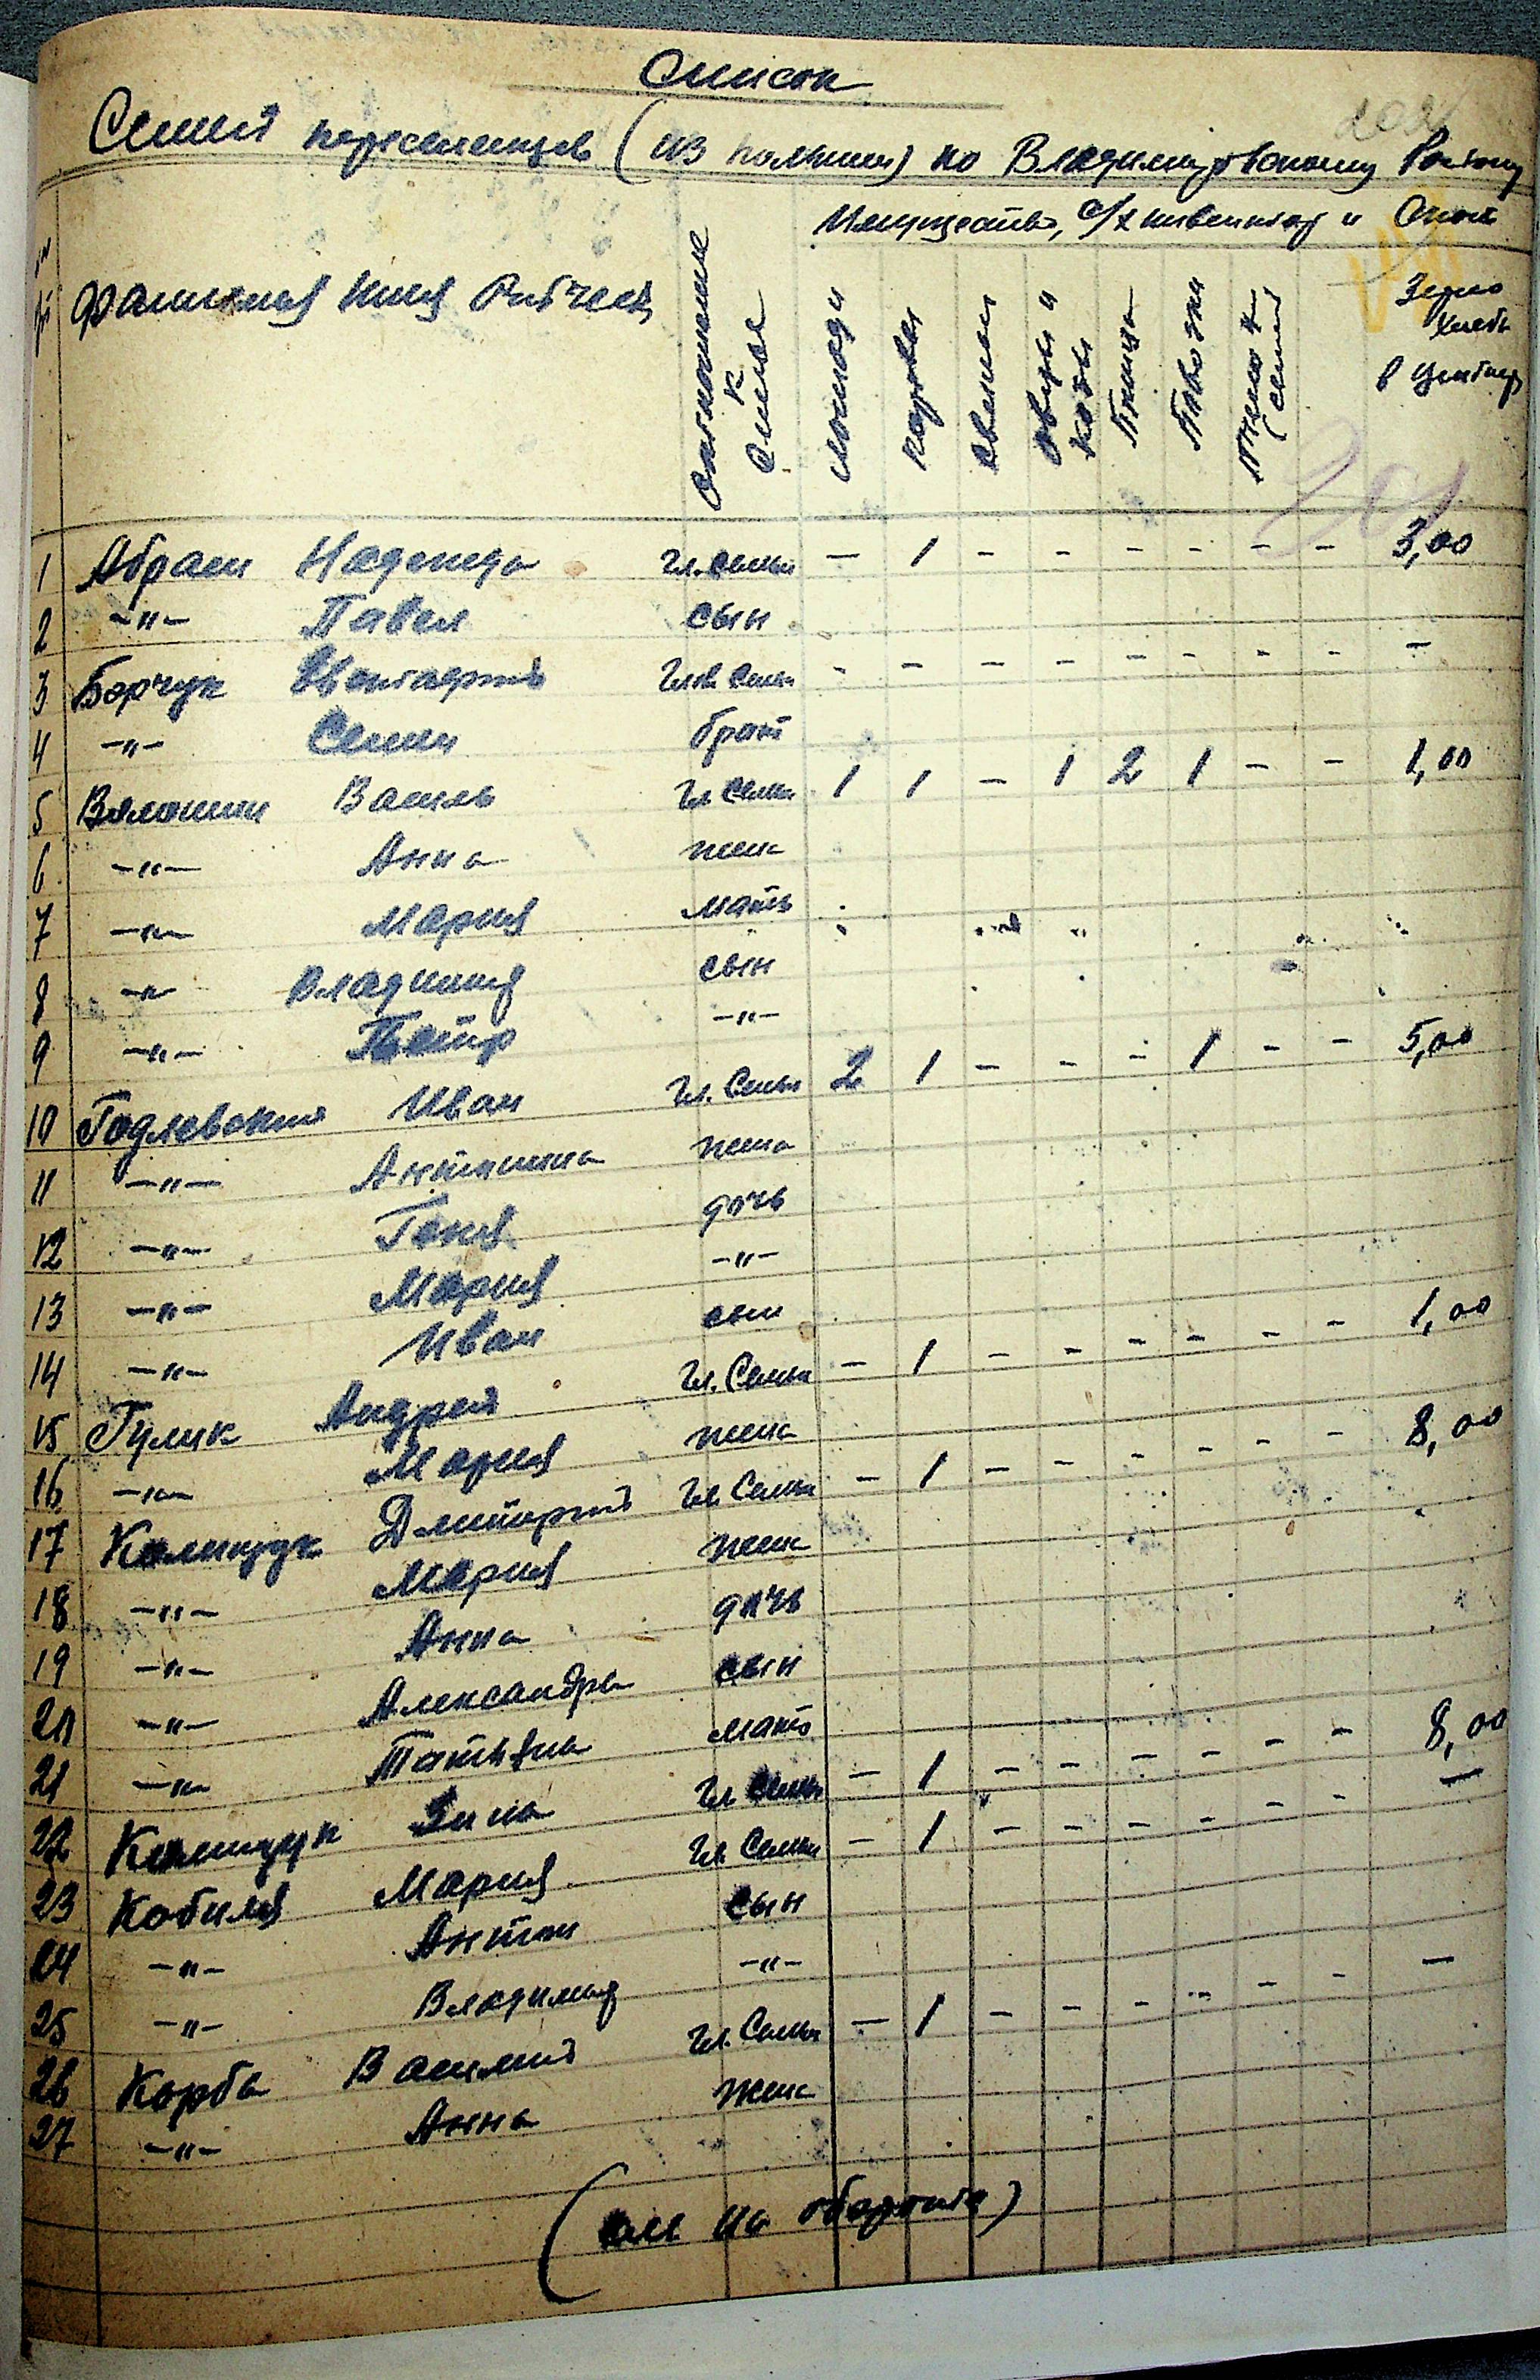 202
Список
Семей переселенцев (из польши) по Владимировскому Району
Имущество, с/х инвентар и Скот
№ Фамилия Имя Отчест. Отношение к Семье Лошади Коровы Свиньи Овцы и Козы Птица Повозки Зерно хлеба в Центнер
201
1 Абрам Надежда Гл. семьи – 1 – – – – – – 3,00
2 –"– Павел сын
3 Борчук Глав Семьи – – – – – – – – –
4 –"– Семен брат
5 Волошин Василь Гл Семьи 1 1 – 1 2 1 – – 1,00
6 –"– Анна жена
7 –"– Мария мать
8 –"– Владимир сын
9 –"– Петр –"–
10 Годлевский Иван Гл. Семьи 2 1 – – – 1 – – 5,00
11 –"– Антонина жена
12 –"– Геня дочь
13 –"– Мария –"–
14 –"– Иван сын
15 Гулик Андрей Гл. Семьи – 1 – – – – – – 1,00
16 –"– Мария жена
17 Калищук Дмиторий Гл. Семьи – 1 – – – – – – 8,00
18 –"– Мария жена
19 –"– Анна дочь
20 –"– Александра сын
21 –"– Татьяна мать
22 Калищук Зина Гл Семьи – 1 – – – – – – 8,00
23 Кобиля Мария Гл. Семьи – 1 – – – – – – –
24 –"– Антон сын
25 –"– Владимир –"–
26 Корба Василий Гл. Семьи – 1 – – – – – – –
27 –"– Анна жена
(см на обороте)